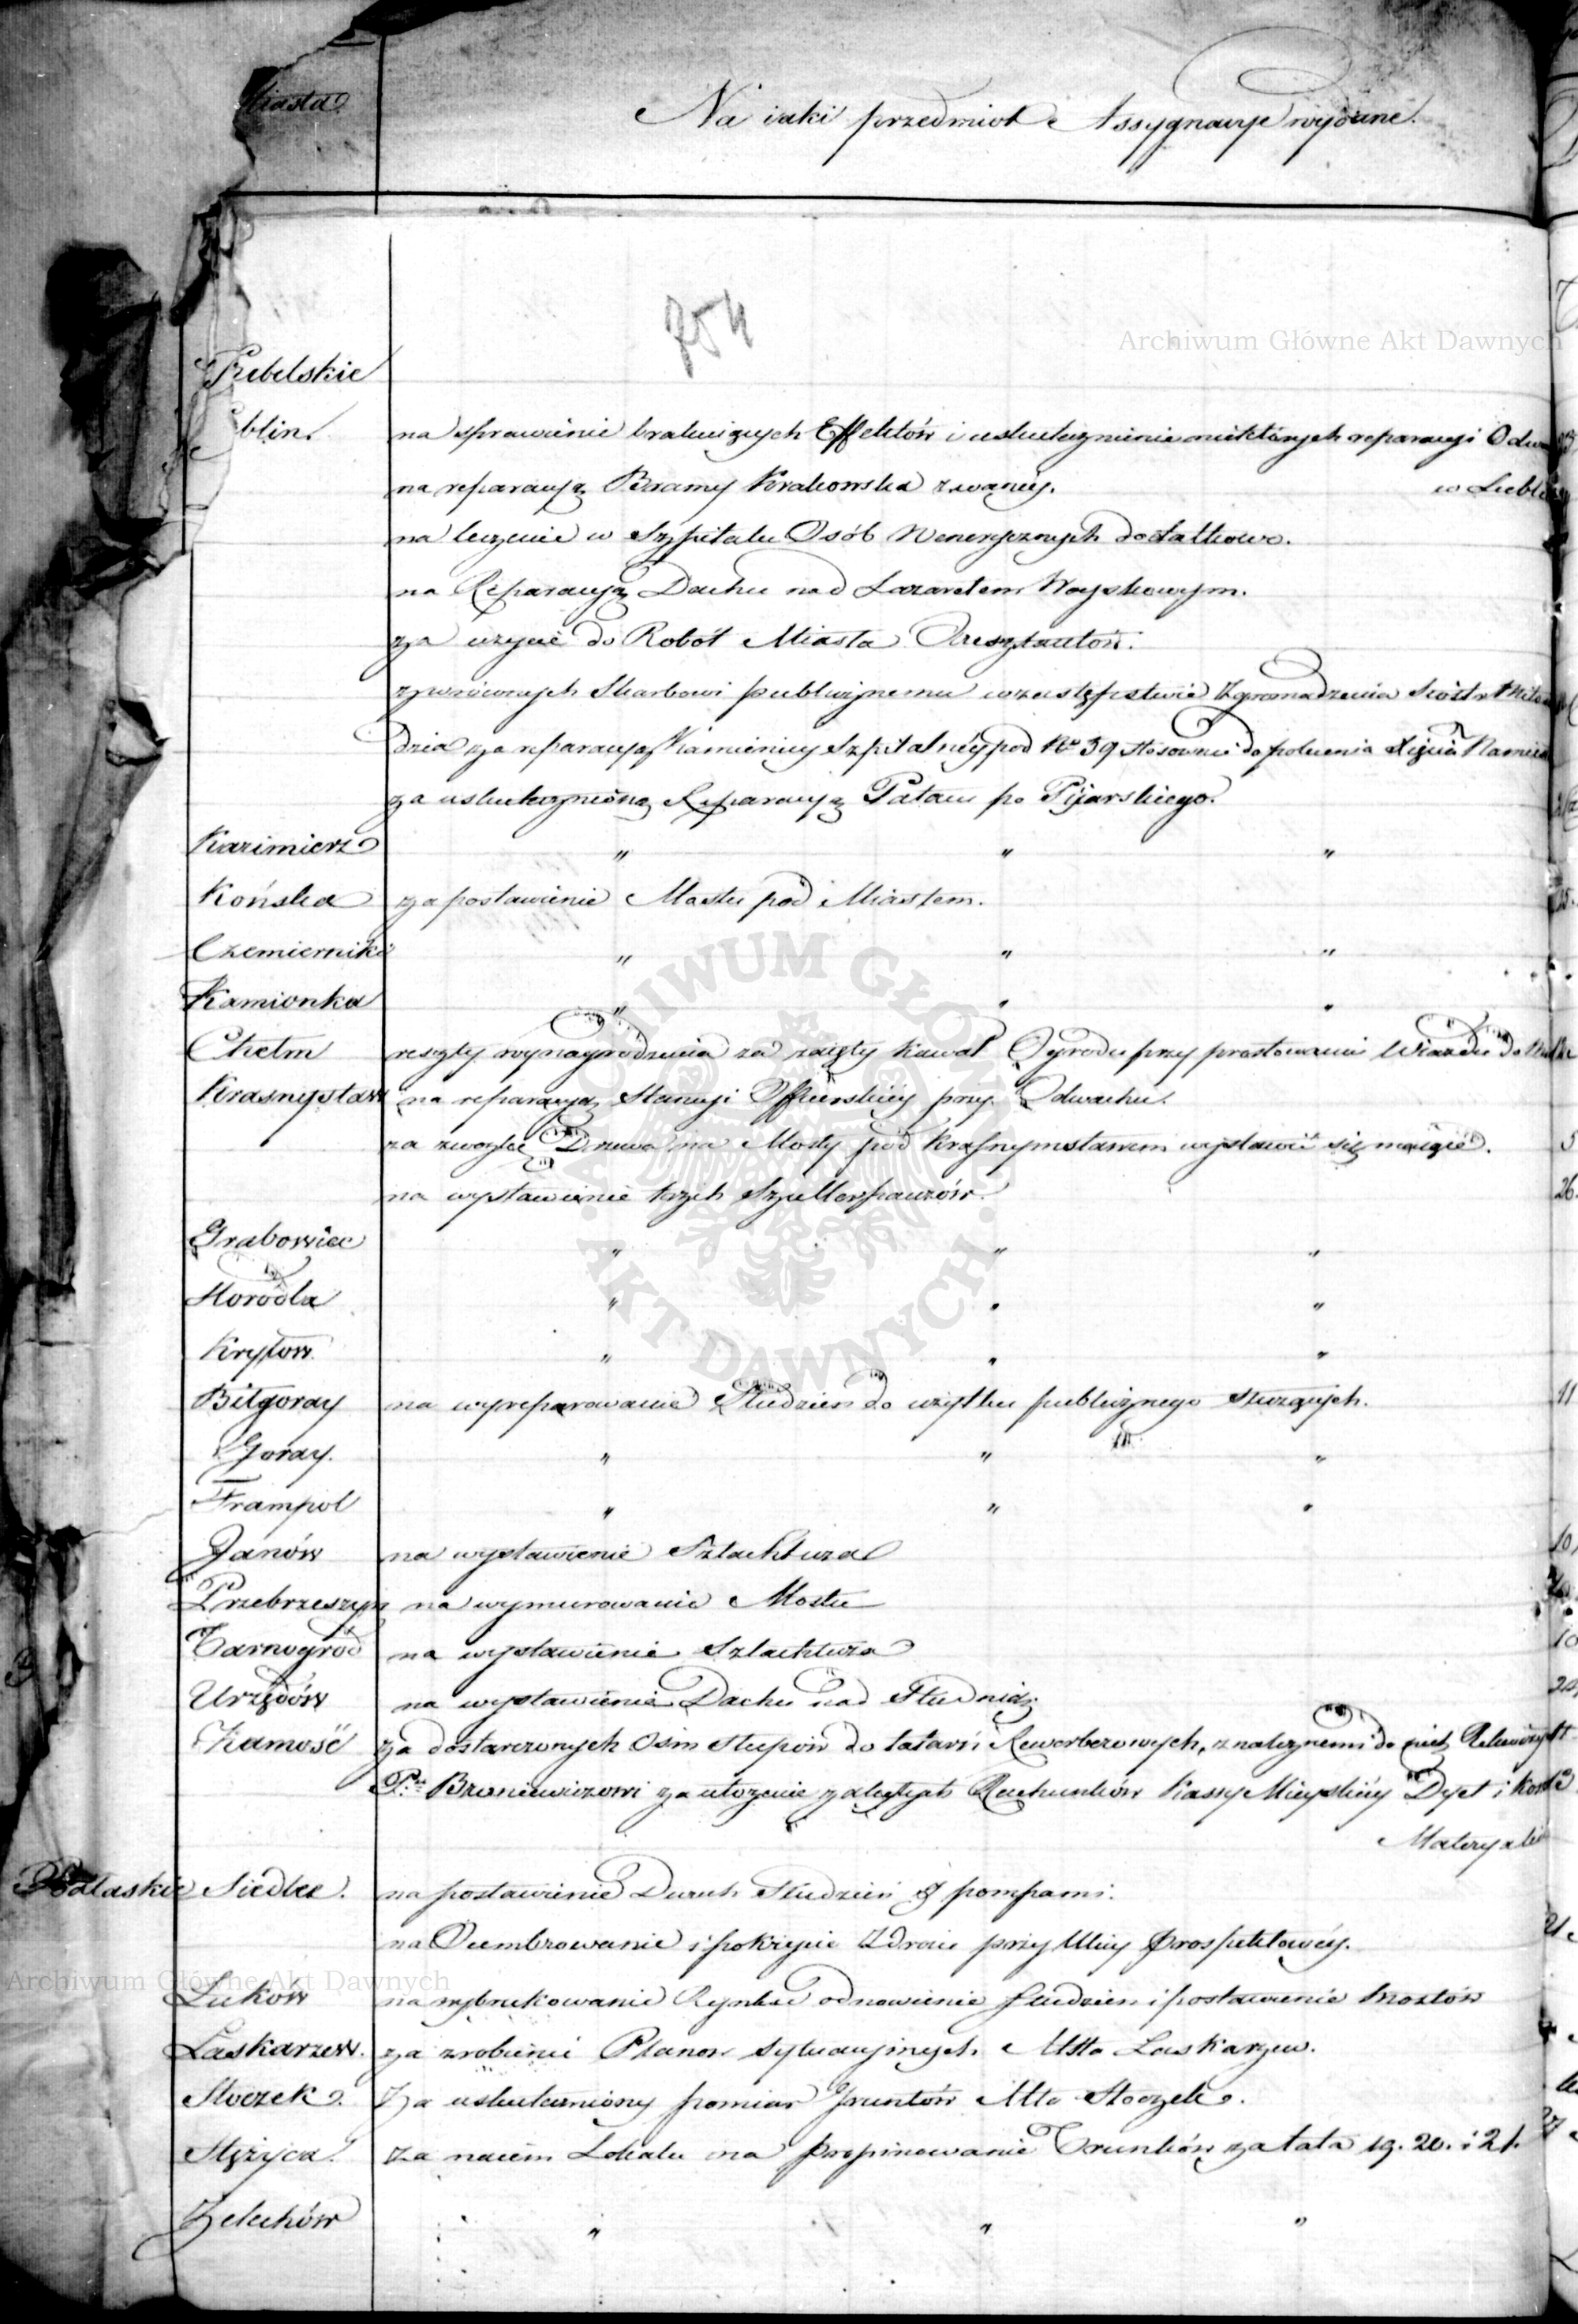 Miasta
Na iaki przedmiot Assygnacye wydane.
754
Archiwum Główne Akt Dawnych
Lubelskie
blin. na sprawienie brakuiących Effektów i uskutecznienie niektórych reparacyi Odwa
w Lubli
na reparacyą Bramy Krakowska zwaney.
na leczenie w Szpitalu Osób Wenerycznych dodatkowo.
na Reparacyą Dachu nad Lazaretem Woyskowym.
za użycie do Robót Miasta Aresztantów.
zwróconych Skarbowi publicznemu w zastępstwie Zgromadzenia Sióstr Miłosier
dzia za reparacyą Kamienicy Szpitalnéy pod No 39 stosownie do polecenia Xięcia Namies
za uskutecznioną Reparacyą Pałacu po Pijarskiego.
Kazimierz " " "
Końska za postawienie Mostu pod Miastem.
Czemierniki " " "
Kamionka " " "
Chełm reszty wynagrodzenia za zaięty kawał Ogrodu przy prostowaniu Wiazdu do
Krasnystaw na reparacyą Stancyi Officerskiéy przy Odwachu.
za zwózkę Drzewa na Mosty pod Krasnymstawem wystawić się maiące.
na wystawienie trzech Szyllerhauzów.
Grabowiec " " "
Horodła " " "
Kryłow " " "
Biłgoray na wyreparowanie Studzien do użytku publicznego służących.
Goray. " " "
Frampol " " "
Janów na wystawienie Szlachtuza
Szczebrzeszyn na wymurowanie Mostu
Tarnogród na wystawienie Szlachtuza
Urzędów na wystawienie Dachu nad Studnią
Zamość za dostarczonych Ośm słupów do latarń Rewerberowych, z należnemi do nich
Pu Broniewiczowi za ułożenie zaległych Rachunków Kassy Mieyskiéy Dyet i Kosz
Materyałów
Podlaskie Siedlce. na postawienie Dwuch Studzien z pompami.
na Ocembrowanie i pokrycie Zdroiu przy Ulicy Prospektowéy.
Archiwum Główne Akt Dawnych
Łuków na wybrukowanie Rynku odnowienie studzien i postawienie mostów
Łaskarzew. za zrobienie Planow Sytuacyinych Mta Łaskarzew.
Stoczek. Za uskuteczniony pomiar gruntów Mta Stoczek.
Stężyca. Za naiem Lokalu na propinowanie Trunków za lata 19. 20. i 21.
Żelechów " " "
ARCHIWUM GŁÓWNE AKT DAWNYCH